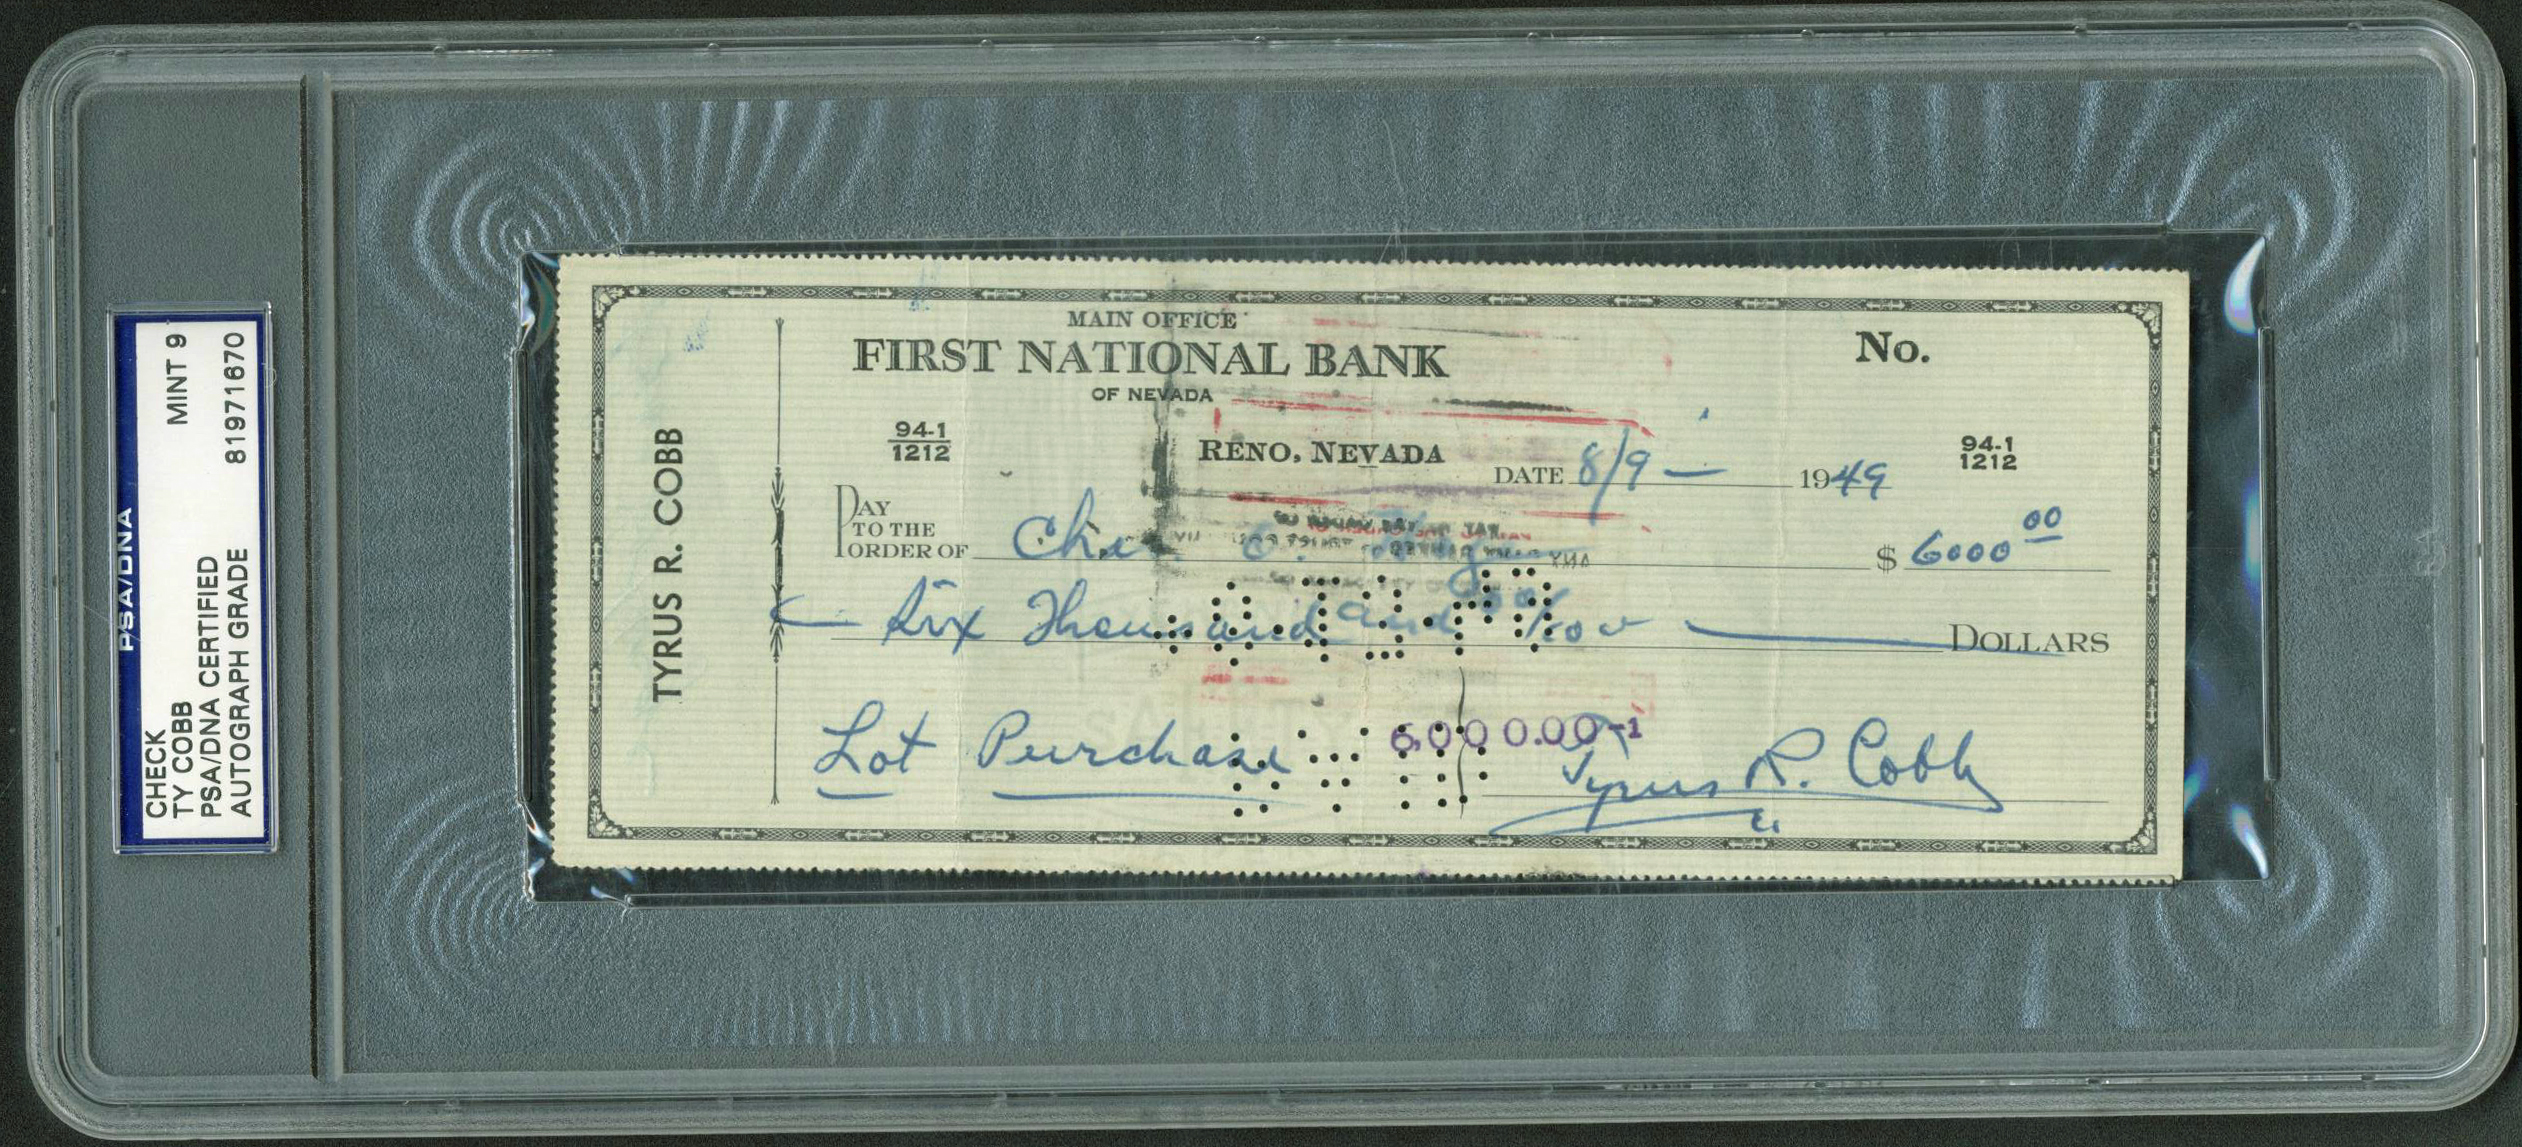 PSA/DNA
CHECK
TY COBB
PSA/DNA CERTIFIED
AUTOGRAPH GRADE
MINT 9
81971670
TYRUS R. COBB
MAIN OFFICE
FIRST NATIONAL BANK
OF NEVADA
No.
94-1
1212
RENO, NEVADA
DATE 8/9 — 1949
94-1
1212
PAY
TO THE
ORDER OF
$ 6000 00
Six Thousand and 00/100 DOLLARS
6,000.00-1
Lot Purchase
Tyrus R. Cobb